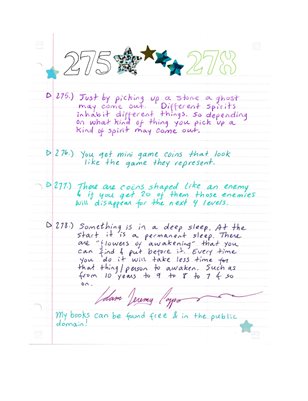 275 278
275.) Just by picking up a stone a ghost
may come out. Different spirits
inhabit different things. So depending
on what kind of thing you pick up a
kind of spirit may come out.
276.) You get mini game coins that look
like the game they represent.
277.) There are coins shaped like an enemy
& if you get 20 of them those enemies
will disappear for the next 4 levels.
278.) Something is in a deep sleep. At the
start it is a permanent sleep. There
are "flowers of awakening" that you
can find & put before it. Every time
you do it will take less time for
that thing/person to awaken. Such as
from 10 years to 9 to 8 to 7 & so
on.
Jeremy
My books can be found free & in the public
domain!